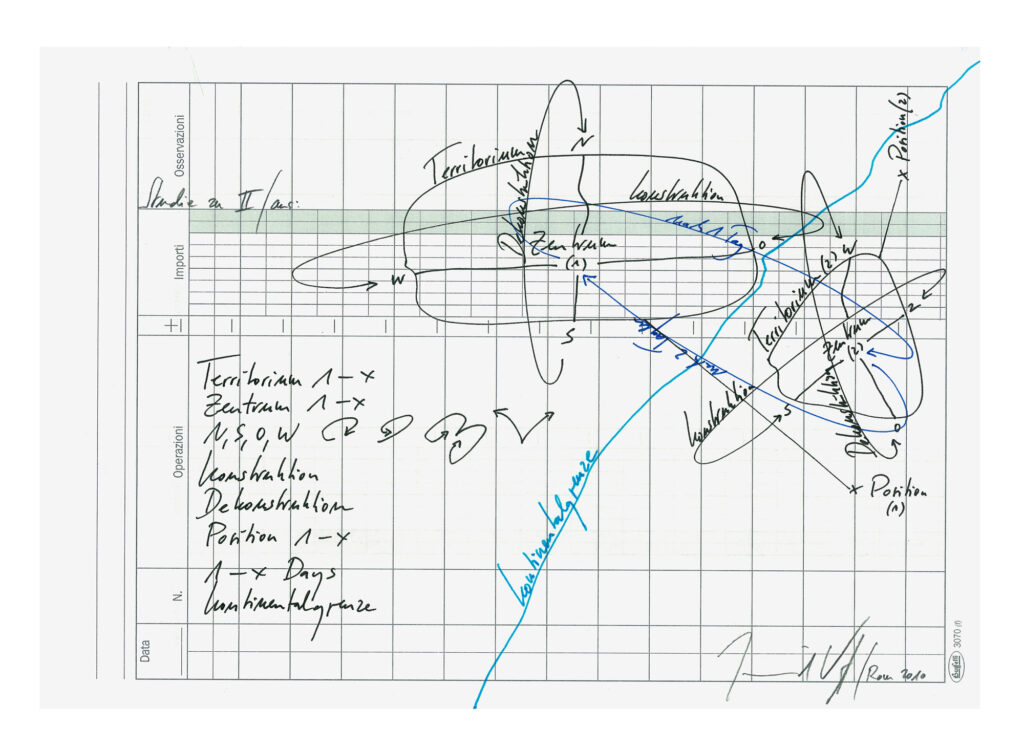 Osservazioni
Importi
Operazioni
N.
Data
Studie zu II/aus:
Territorium
Dekonstruktion
N
Konstruktion
nach 1 Tag
Zentrum
(1)
W
O
S
Position (2)
Territorium (2)
W
N
Zentrum
(2)
Konstruktion
S
Dekonstruktion
O
Position
(1)
Kontinentalgrenze
Territorium 1-x
Zentrum 1-x
N, S, O, W
Konstruktion
Dekonstruktion
Position 1-x
1-x Days
Kontinentalgrenze
/Rom 2010
3070 (f)